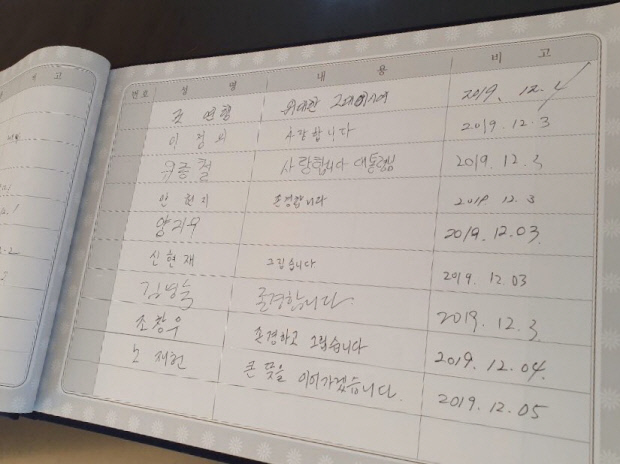 고
번호 성 명 내 용 비 고
위대한 2019. 12. 4
이 정 사랑합니다 2019. 12. 3
우종철 사랑합니다 대통령님 2019. 12. 3
안 현 존경합니다 2019 12. 3
2019. 12. 03
신현재 그립습니다 2019. 12 03
김병욱 존경합니다. 2019. 12. 3
조창우 존경하고 그립습니다 2019. 12. 04.
노재헌 큰 뜻을 이어가겠습니다. 2019. 12. 05